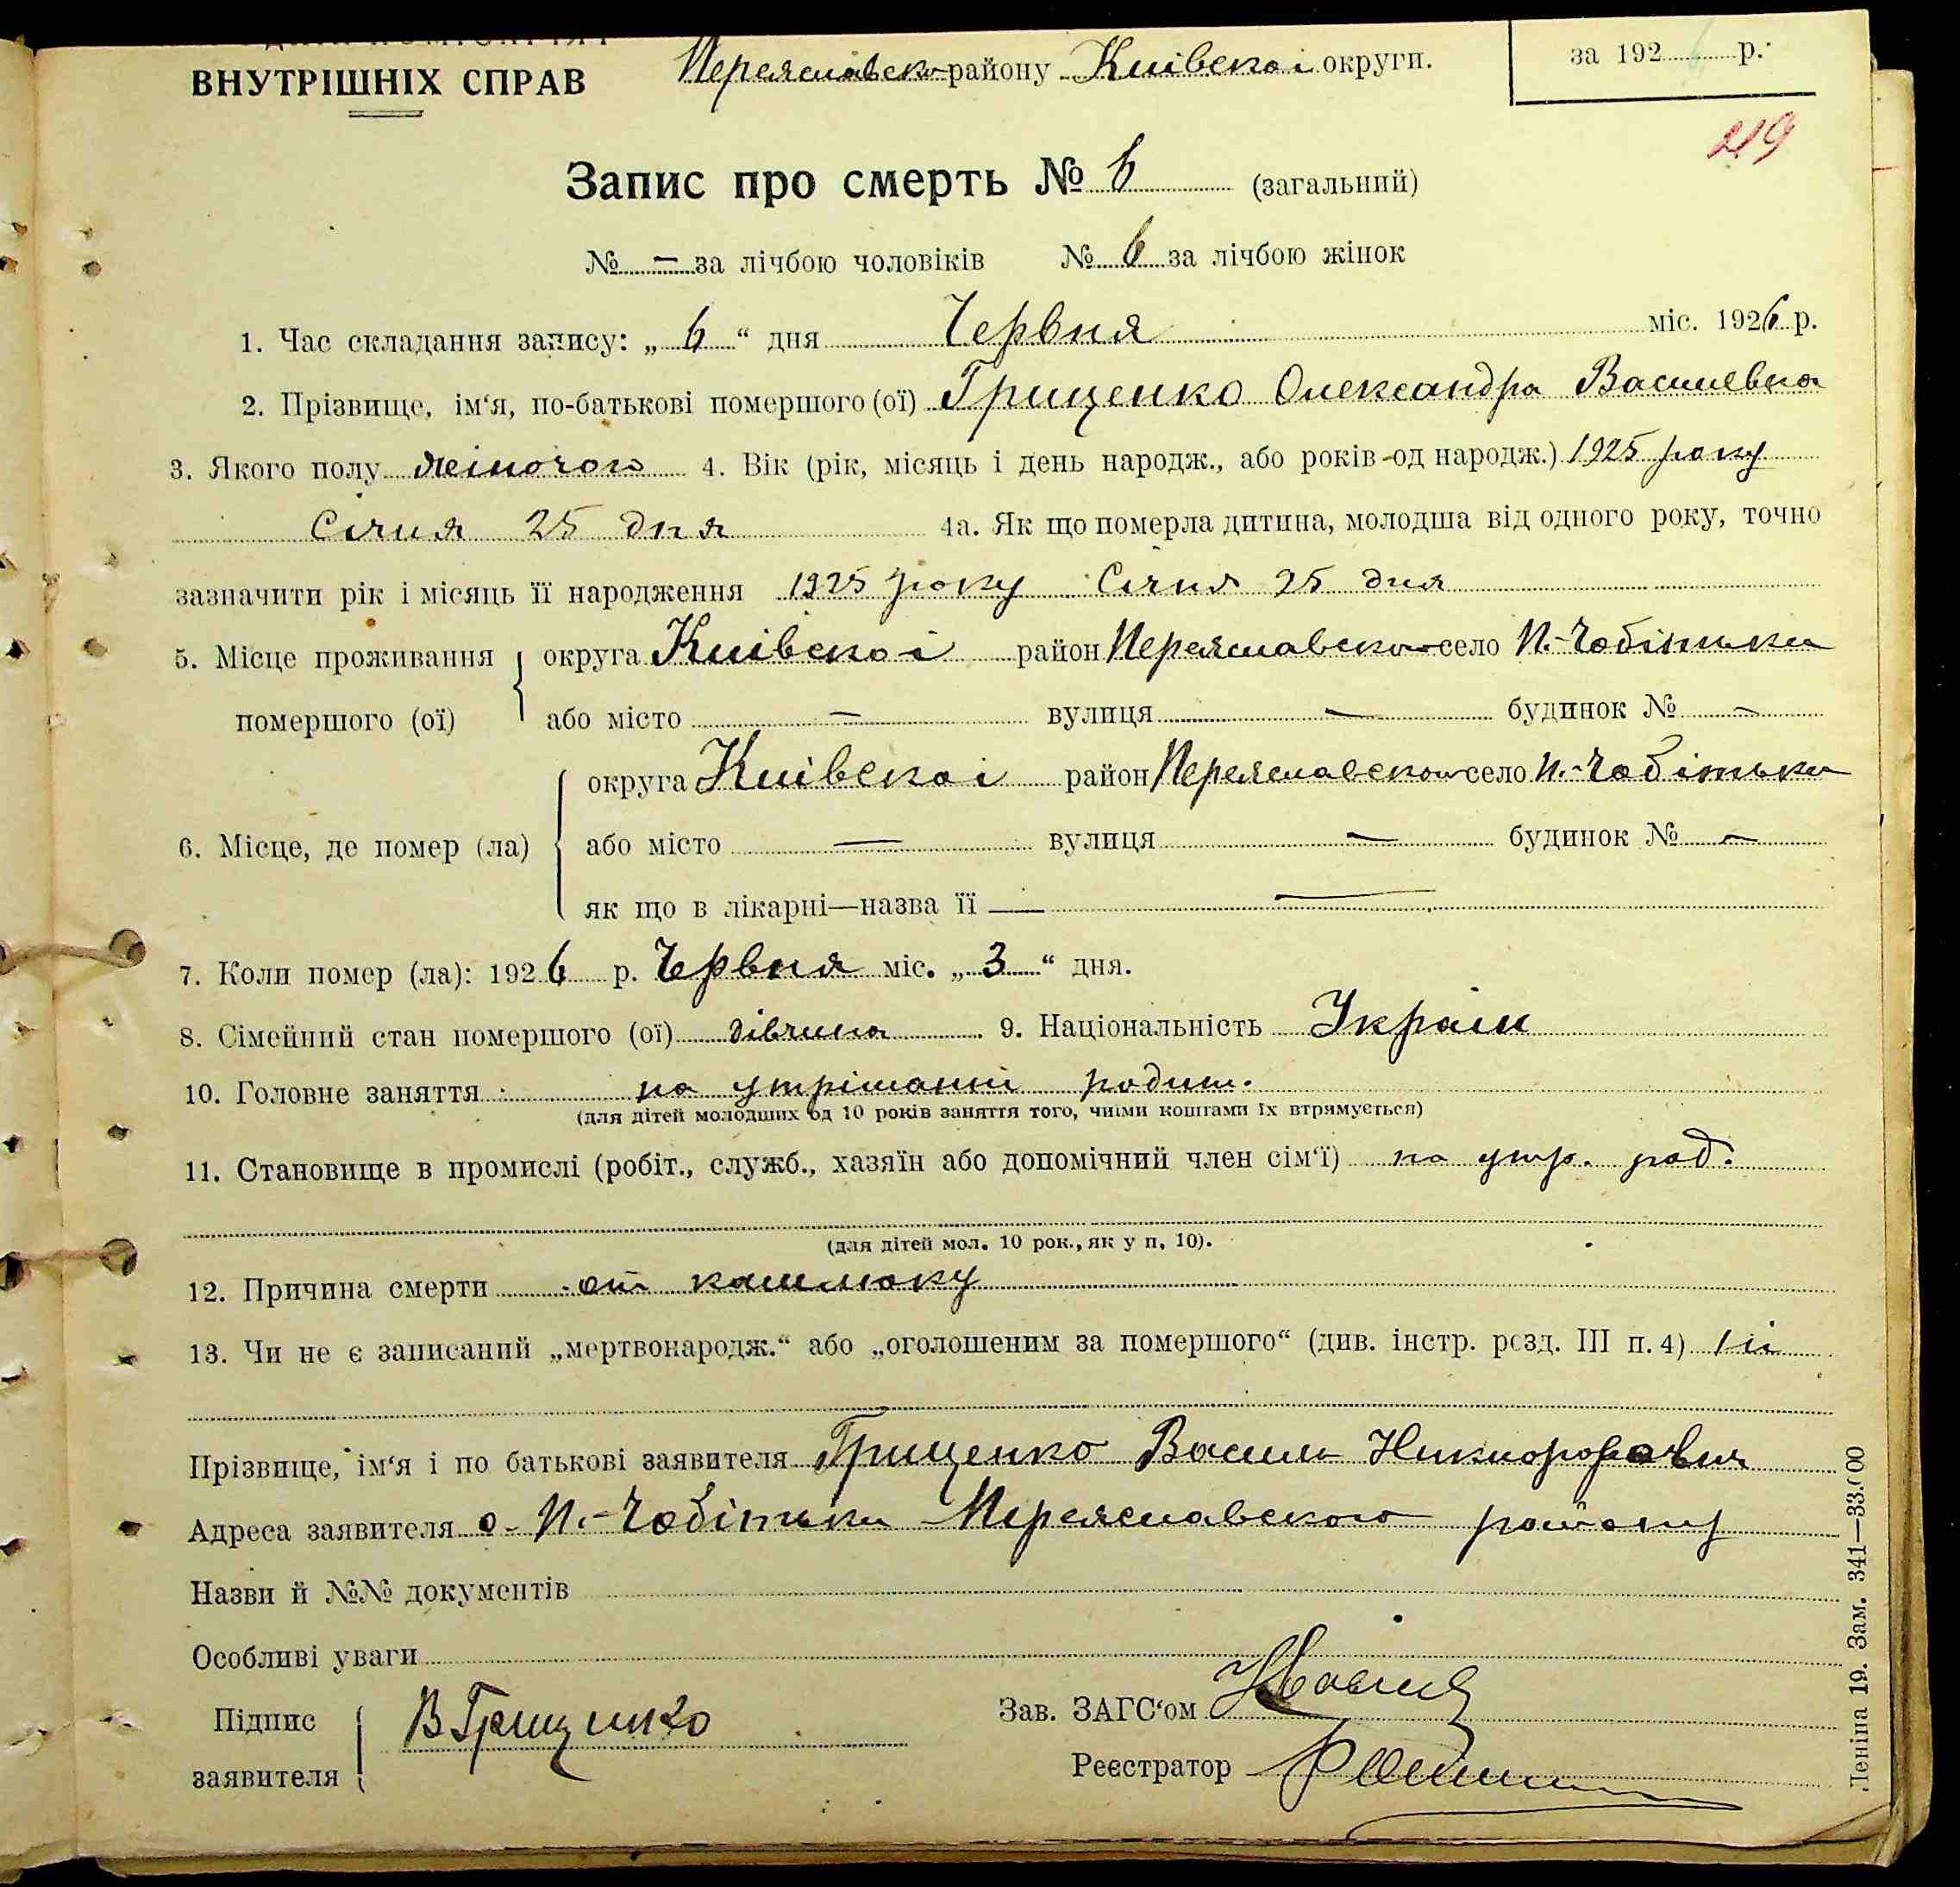 ВНУТРІШНІХ СПРАВ
Переяславско району Киівскоі округи.
за 192 6 р.
219
Запис про смерть № 6 (загальний)
№ — за лічбою чоловіків № 6 за лічбою жінок
1. Час складання запису: „ 6 “ дня Червня міс. 1926 р.
2. Прізвище, ім‘я, по-батькові помершого (ої) Грищенко Олександра Васылевна
3. Якого полу жіночого 4. Вік (рік, місяць і день народж., або років-од народж.) 1925 року
Січня 25 дня 4а. Як що померла дитина, молодша від одного року, точно
зазначити рік і місяць її народження 1925 року Січня 25 дня
5. Місце проживання округа Киівскоі район Переяславского село П.-Чобітьки
помершого (ої) або місто — вулиця — будинок № —
округа Киівскоі район Переяславского село П.-Чобітьки
6. Місце, де помер (ла) або місто — вулиця — будинок № —
як що в лікарні—назва її —
7. Коли помер (ла): 1926 р. Червня міс. „ 3 “ дня.
8. Сімейний стан помершого (ої) дівчина 9. Національність Украін
10. Головне заняття на утріманні родит.
(для дітей молодших од 10 років заняття того, чиїми коштами їх втрямується)
11. Становище в промислі (робіт., служб., хазяїн або допомічний член сім‘ї) на утр. род.
(для дітей мол. 10 рок., як у п. 10).
12. Причина смерти от кашлюку
13. Чи не є записаний „мертвонародж.“ або „оголошеним за помершого“ (див. інстр. розд. III п. 4) ні
Прізвище, ім‘я і по батькові заявителя Грищенко Василь Никифорович
Адреса заявителя с. П.-Чобітьки Переяславского району
Назви й №№ документів
Особливі уваги
Підпис заявителя В Грищенко
Зав. ЗАГС‘ом
Реєстратор
Леніна 19. Зам. 341—33.000